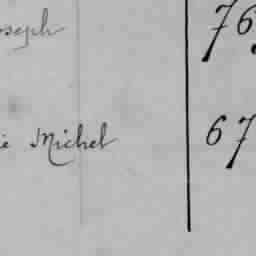 oseph 76
ie Michel 67